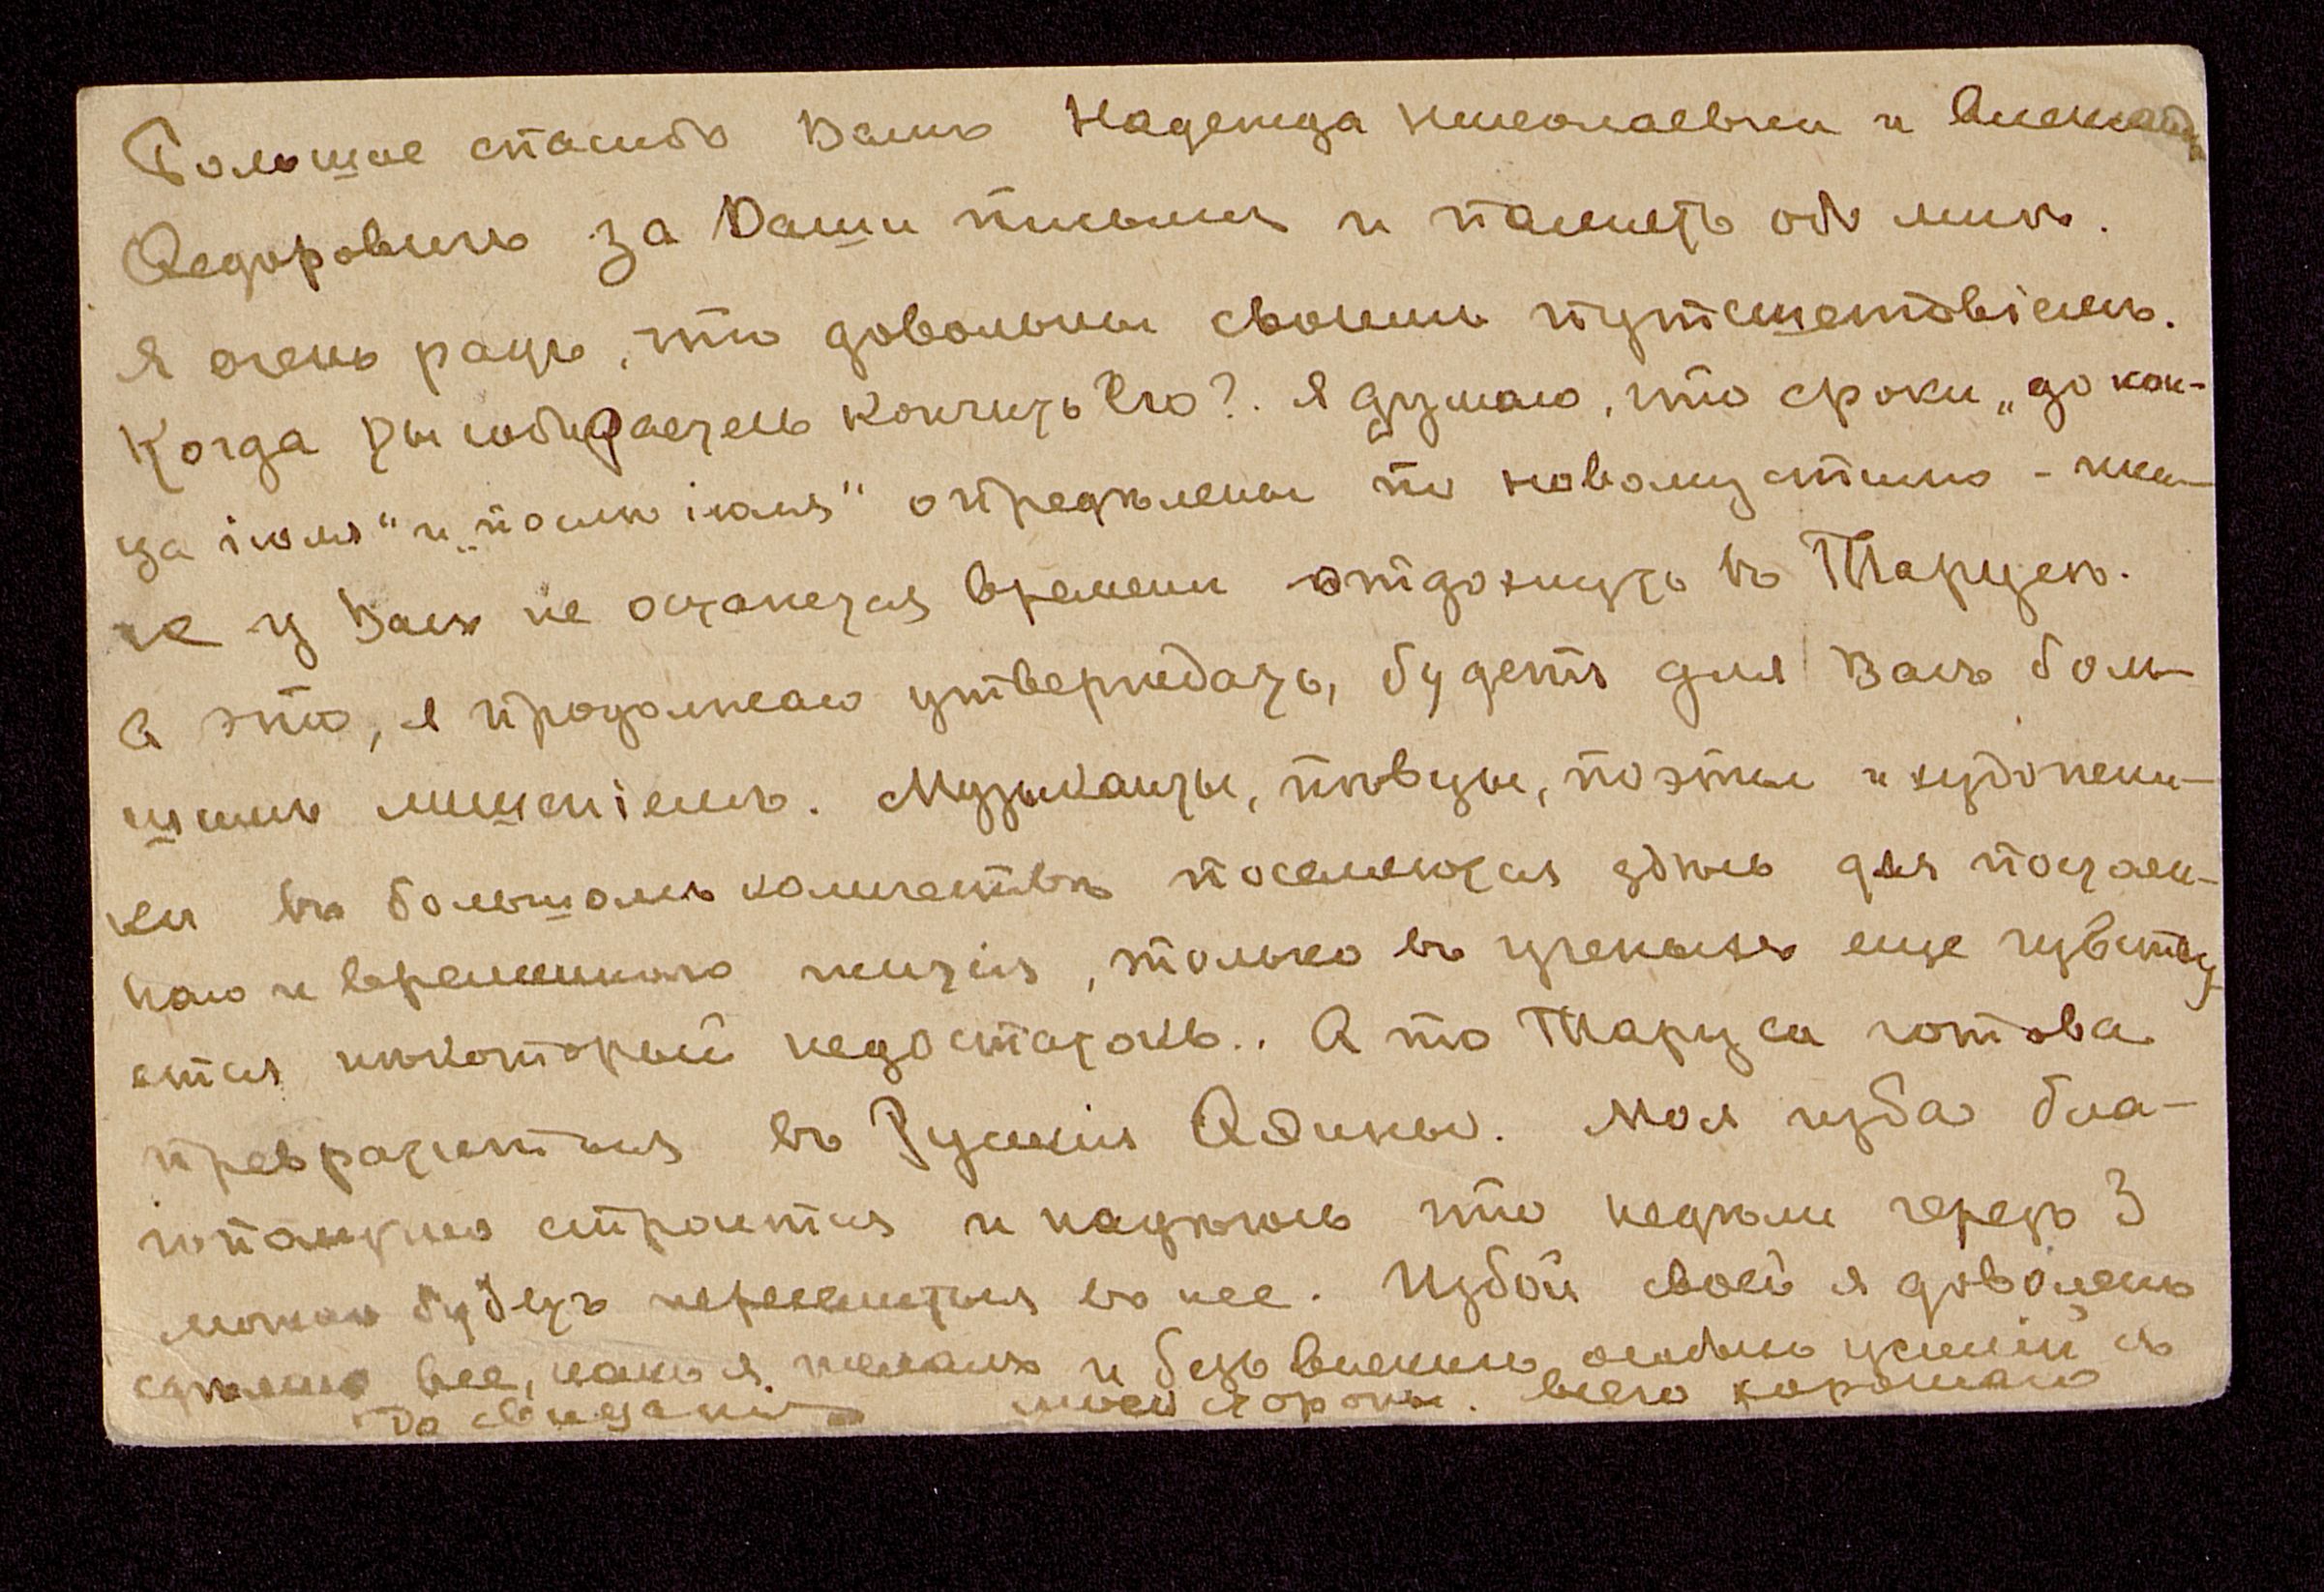 Большое спасибо Вамъ Надежда Николаевна и Александръ
Федоровичъ за Ваши письма и память обо мнѣ.
Я очень радъ, что довольны своимъ путешествіемъ.
Когда Вы собираетесь кончить его?. Я думаю, что сроки „до кон-
ца іюля" и „послѣ іюля" опредѣлены по новому стилю - ина-
че у Васъ не останется времени отдохнуть въ Тарусѣ.
А это, я продолжаю утверждать, будетъ для Васъ боль-
шимъ лишеніемъ. Музыканты, пѣвцы, поэты и художни-
ки въ большомъ количествѣ поселяются здѣсь для постоян-
наго и временнаго житія, только въ ученыхъ еще чувству-
ется нѣкоторый недостатокъ.. А то Таруса готова
превратиться въ Русскія Афины. Моя изба бла-
гополучно строится и надѣюсь что недѣли черезъ 3
можно будетъ переселиться въ нее. Избой своей я доволенъ
сдѣлано все, какъ я желалъ и безъ всякихъ особыхъ усилій съ
моей стороны. Всего хорошаго
До свиданія